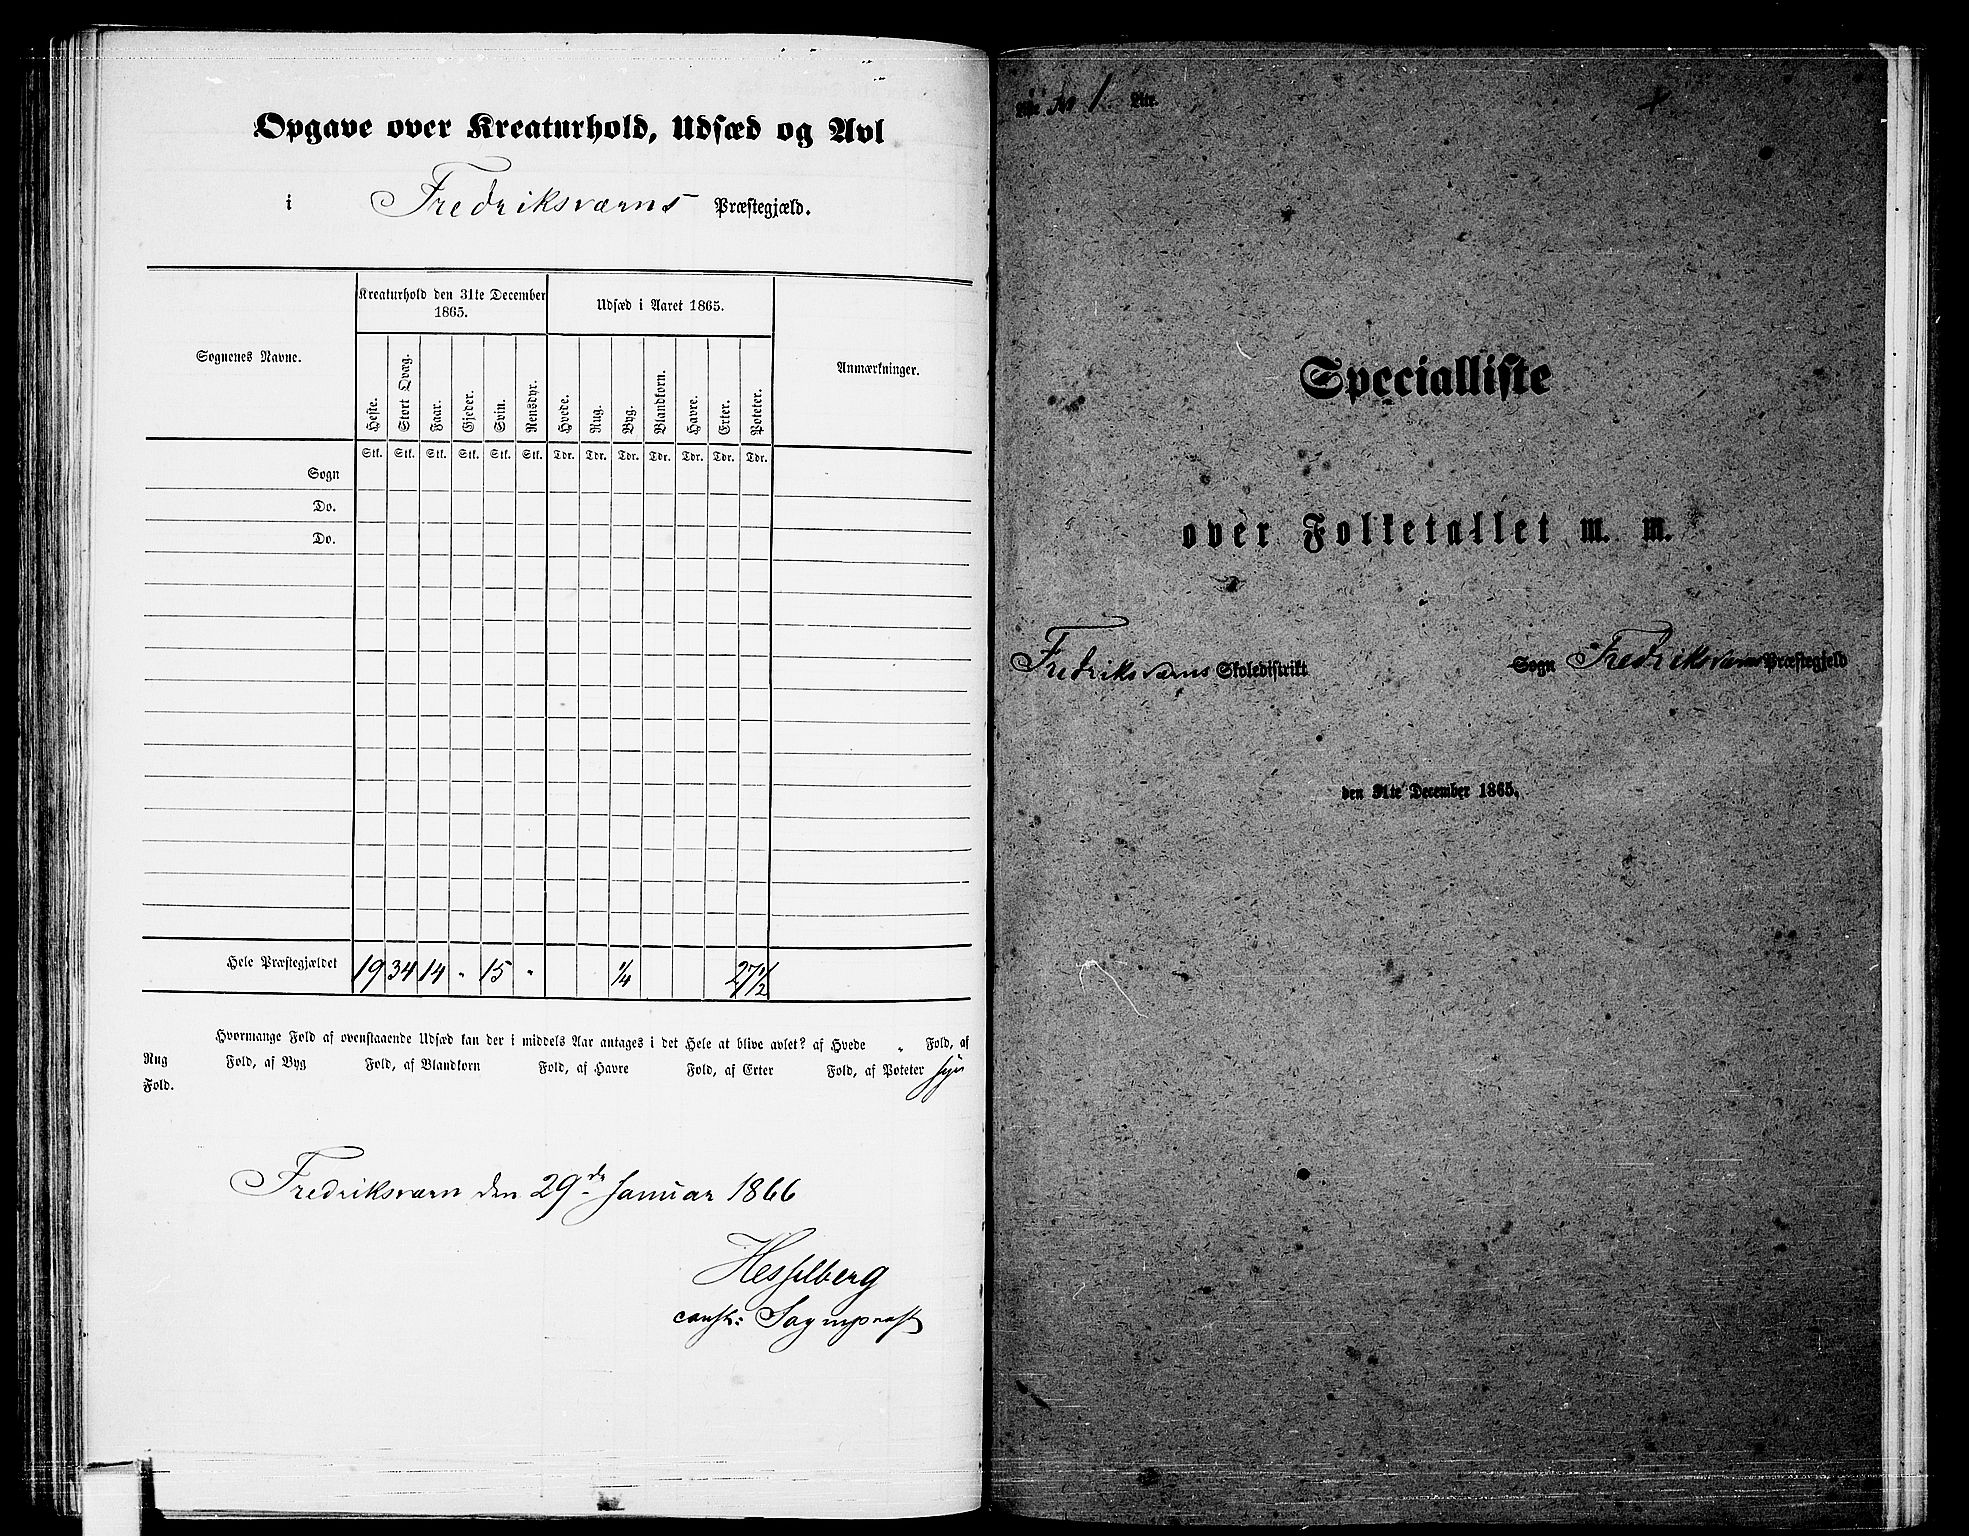 Opgave over Kreaturhold, Udsæd og Avl
i Fredriksværns Præstegjæld.
Sognenes Navne.
Kreaturhold den 31te December 1865.
Udsæd i Aaret 1865.
Anmærkninger.
Heste. Stort Qvæg. Faar. Gjeder. Svin. Rensdyr. Hvede. Rug. Byg. Blandkorn. Havre. Erter. Poteter.
Stk. Stk. Stk. Stk. Stk. Stk. Tdr. Tdr. Tdr. Tdr. Tdr. Tdr. Tdr.
Sogn
Do.
Do.
Hele Præstegjældet 19 34 14 " 15 " 1/4 27 1/2
Hvormange Fold af ovenstaaende Udsæd kan der i middels Aar antages i det Hele at blive avlet? af Hvede " Fold, af
Rug Fold, af Byg Fold, af Blandkorn Fold, af Havre Fold, af Erter Fold, af Poteter syv
Fold.
Fredriksværn den 29de Januar 1866
Hesselberg
const: Sogneprest
No 1. Ate.
Specialliste
over Folketallet m. m.
Fredriksværns Skoledistrikt
Sogn Fredriksværns Præstegjeld
den 31te December 1865.